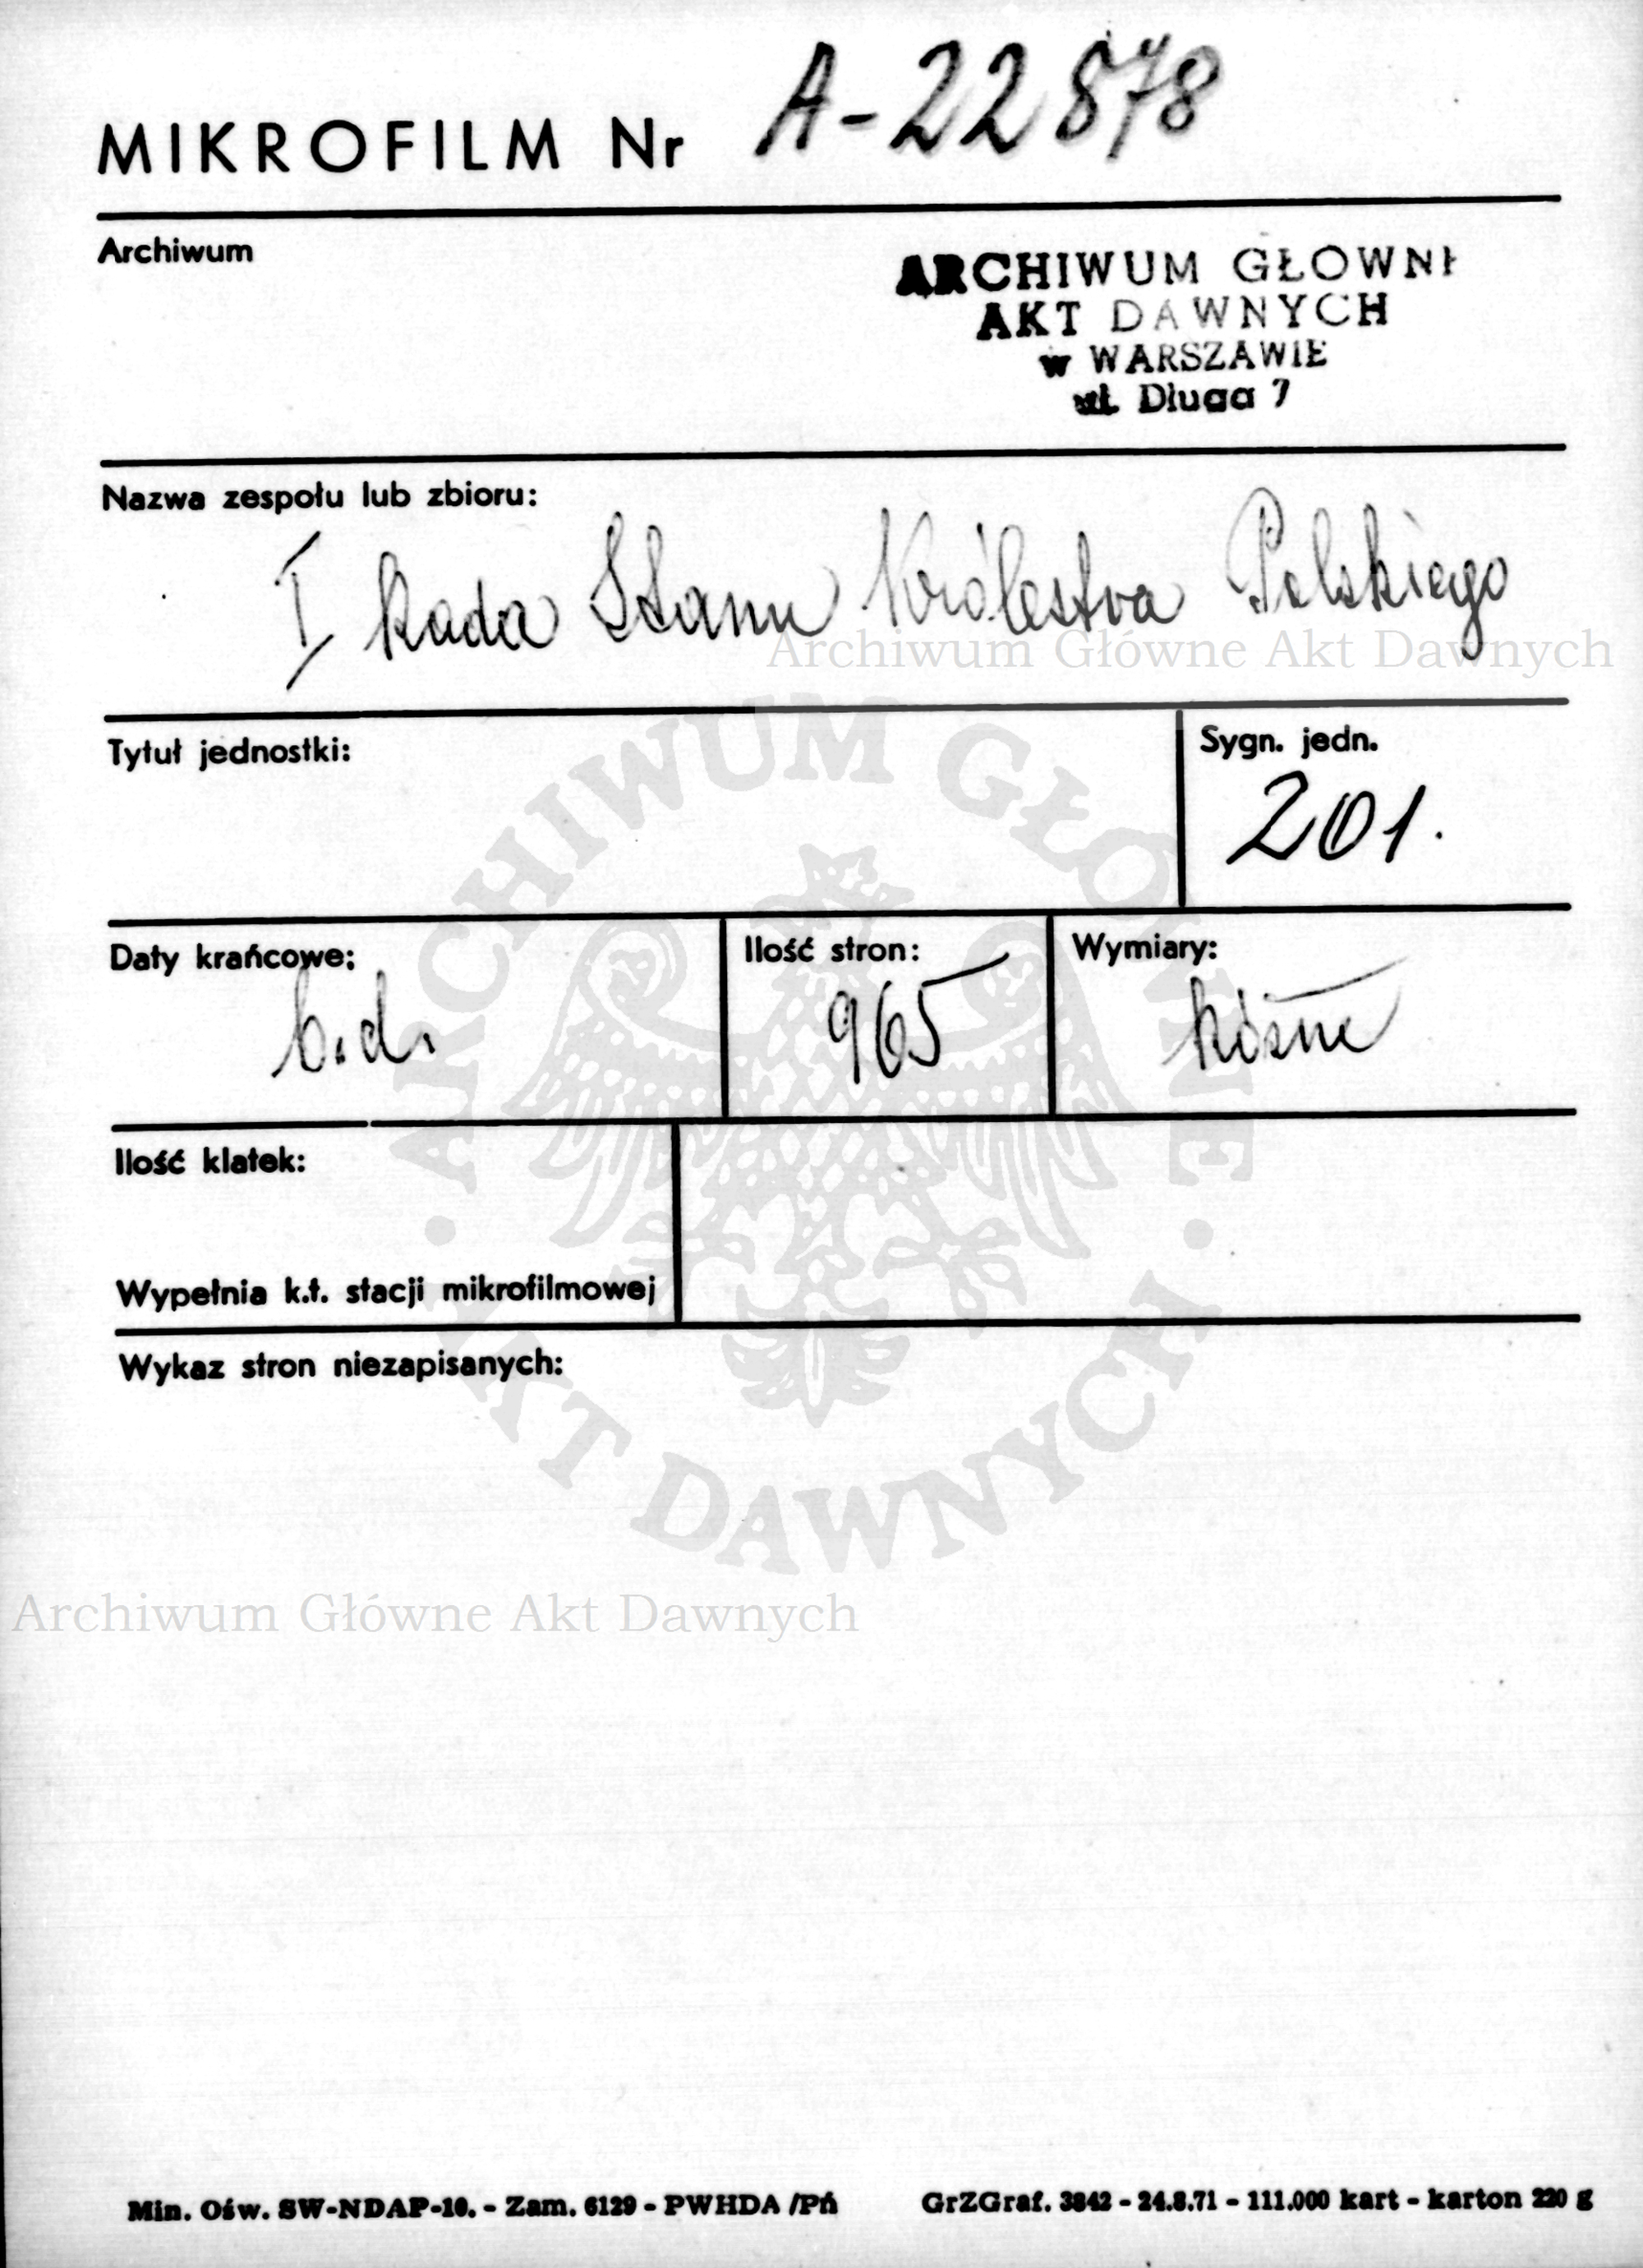 MIKROFILM Nr A-22878
Archiwum
ARCHIWUM GŁOWNE
AKT DAWNYCH
w WARSZAWIE
ul. Długa 7
Nazwa zespołu lub zbioru:
I Rada Stanu Królestwa Polskiego
Archiwum Główne Akt Dawnych
Tytuł jednostki:
Sygn. jedn.
201.
Daty krańcowe:
b.d.
Ilość stron:
965
Wymiary:
Różne
Ilość klatek:
Wypełnia k.t. stacji mikrofilmowej
Wykaz stron niezapisanych:
ARCHIWUM GŁÓWNE
AKT DAWNYCH
Archiwum Główne Akt Dawnych
Min. Ośw. SW-NDAP-10. - Zam. 6129 - PWHDA /Pń GrZGraf. 3842 - 24.8.71 - 111.000 kart - karton 220 g